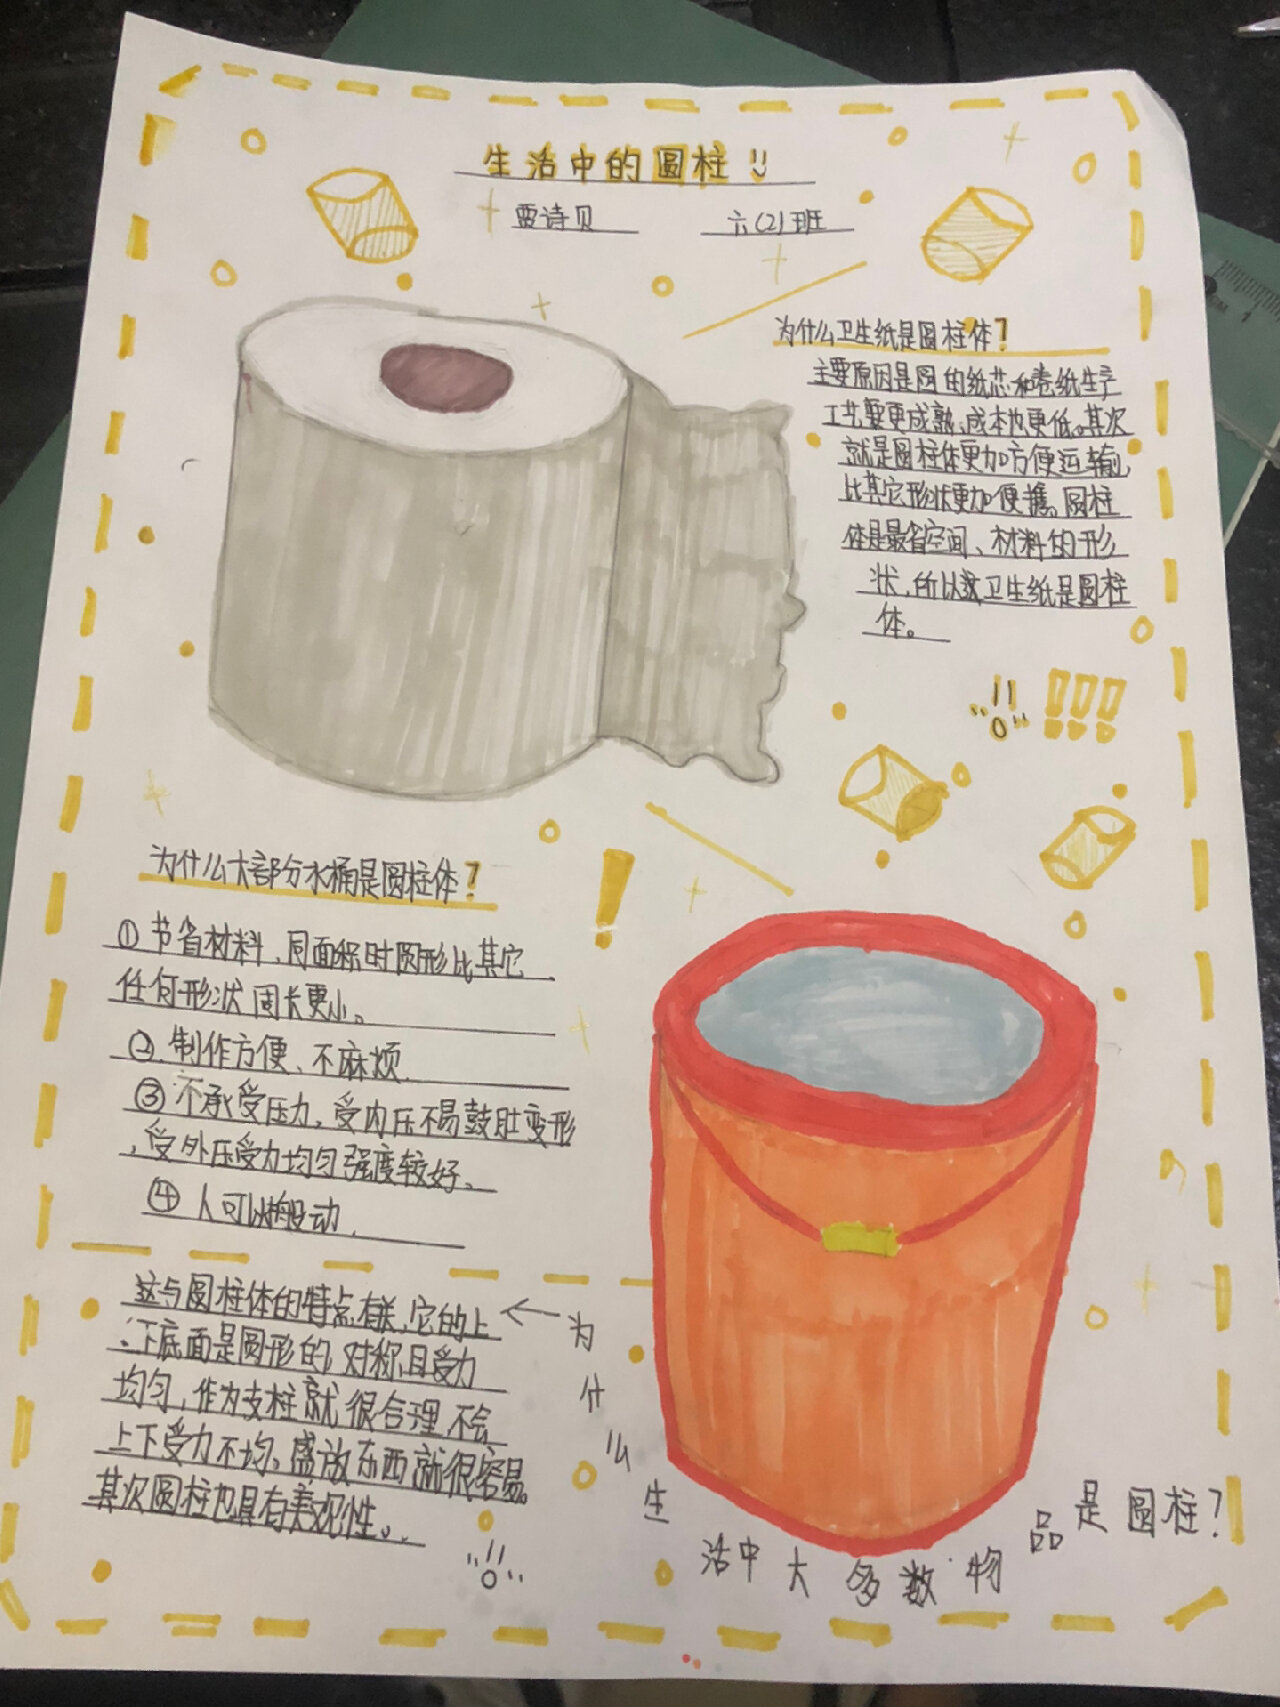 生活中的圆柱!!
雷诗贝 六(2)班
为什么卫生纸是圆柱体?
主要原因是圆的纸芯和卷纸生产
工艺要更成熟、成本也更低。其次
就是圆柱体更加方便运输,
比其它形状更加便携。圆柱
体是最省空间、材料的形
状,所以卫生纸是圆柱
体。
为什么大部分水桶是圆柱体?
①节省材料、同面积时圆形比其它
任何形状周长更小。
②.制作方便、不麻烦.
③不承受压力,受内压不易鼓肚变形
,受外压受力均匀强度较好、
④人可以搬动.
这与圆柱体的特点有关,它的上
、下底面是圆形的,对称,且受力
均匀,作为支柱就很合理,不会
上下受力不均、盛放东西就很容易。
其次圆柱也具有美观性。
为什么生活中大多数物品是圆柱?